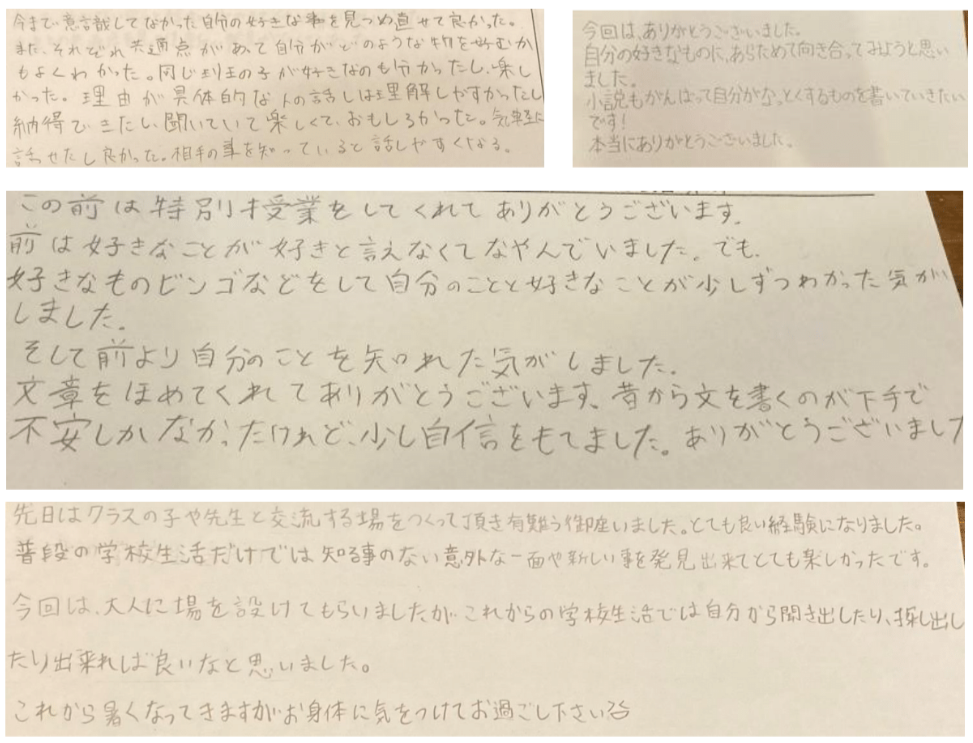 今まで意識してなかった自分の好きな事を見つめ直せて良かった。
また、それぞれ共通点があって自分がどのような物を好むか
もよくわかった。同じ班の子が好きなのも分かったし、楽し
かった。理由が具体的な人の話しは理解しやすかったし
納得できたし、聞いていて楽しくて、おもしろかった。気軽に
話せたし良かった。相手の事を知っていると話しやすくなる。
今回は、ありがとうございました。
自分の好きなものに、あらためて向き合ってみようと思い
ました。
小説もがんばって自分がなっとくするものを書いていきたい
です!
本当にありがとうございました。
この前は特別授業をしてくれてありがとうございます。
前は好きなことが好きと言えなくてなやんでいました。でも、
好きなものビンゴなどをして自分のことと好きなことが少しずつわかった気が
しました。
そして前より自分のことを知れた気がしました。
文章をほめてくれてありがとうございます、昔から文を書くのが下手で
不安しかなかったけれど、少し自信をもてました。ありがとうございました
先日はクラスの子や先生と交流する場をつくって頂き有難う御座いました。とても良い経験になりました。
普段の学校生活だけでは知る事のない意外な一面や新しい事を発見出来てとても楽しかったです。
今回は、大人に場を設けてもらいましたが、これからの学校生活では自分から聞き出したり、探し出し
たり出来れば良いなと思いました。
これから暑くなってきますがお身体に気をつけてお過ごし下さい